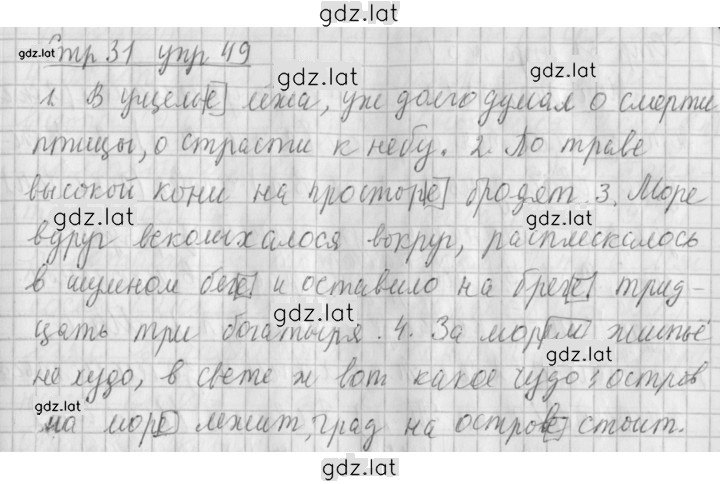 gdz.lat
gdz.lat Стр 31 упр 49
gdz.lat gdz.lat
1. В ущелье лёжа, уж долго думал о смерти
птицы, о страсти к небу. 2. По траве
высокой кони на просторе бродят. 3. Море
gdz.lat gdz.lat
вдруг всколыхалося вокруг, расплескалось
в шумном беге и оставило на бреге трид-
gdz.lat
цать три богатыря. 4. За морем житьё
gdz.lat
не худо, в свете ж вот какое чудо: остров
gdz.lat
на море лежит, град на острове стоит.
gdz.lat
gdz.lat